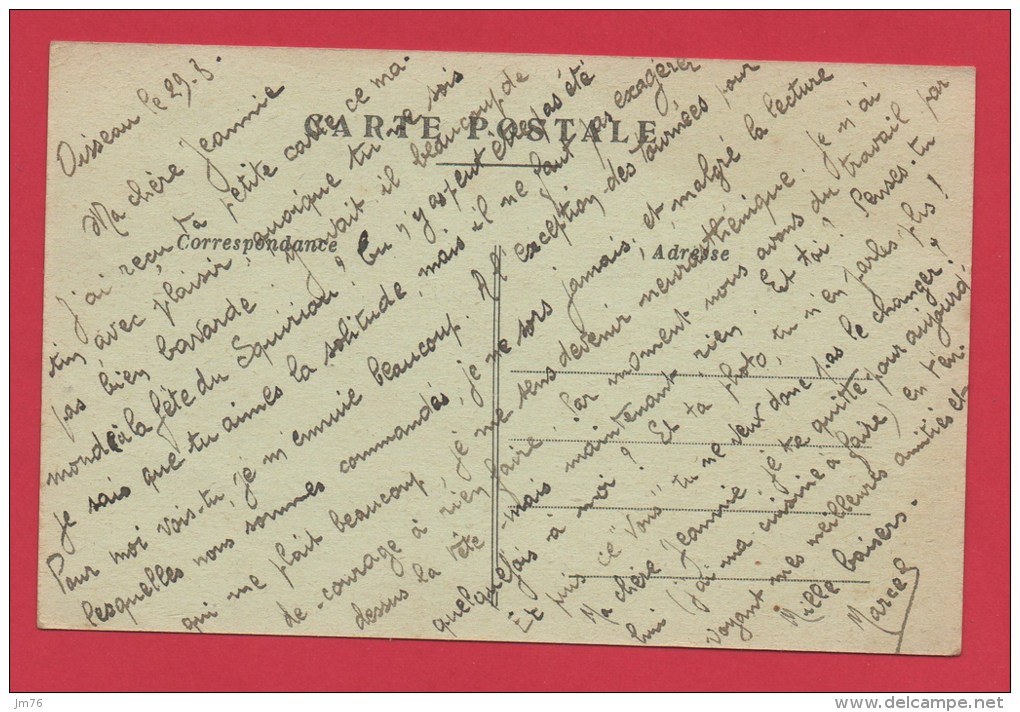 CARTE POSTALE
Correspondance
Adresse
Oisseau le 29-3.
Ma chère Jeannie
J'ai reçu ta petite carte ce ma-
tin avec plaisir, quoique tu ne sois
pas bien bavarde. Y avait il beaucoup de
monde à la fête du Squiriau? Tu n'y as peut être pas été
je sais que tu aimes la solitude, mais il ne faut pas exagérer
Pour moi vois-tu, je m'ennuie beaucoup. A l'exception des tournées pour
lesquelles nous sommes commandés, je ne sors jamais, et malgré la lecture
qui me plait beaucoup, je me sens devenir neurasthénique. Je n'ai
de courage à rien faire. Par moment nous avons du travail par
dessus la tête - mais maintenant rien. Et toi? Penses-tu
quelquefois à moi? Et ta photo, tu n'en parles plus!
Et puis ce "vous" tu ne veux donc pas le changer?
Ma chère Jeannie je te quitte pour aujourd-
hui (j'ai ma cuisine à faire) en t'en-
voyant mes meilleures amitiés et
Mille baisers.
Marcel
jm76
www.delcampe.net